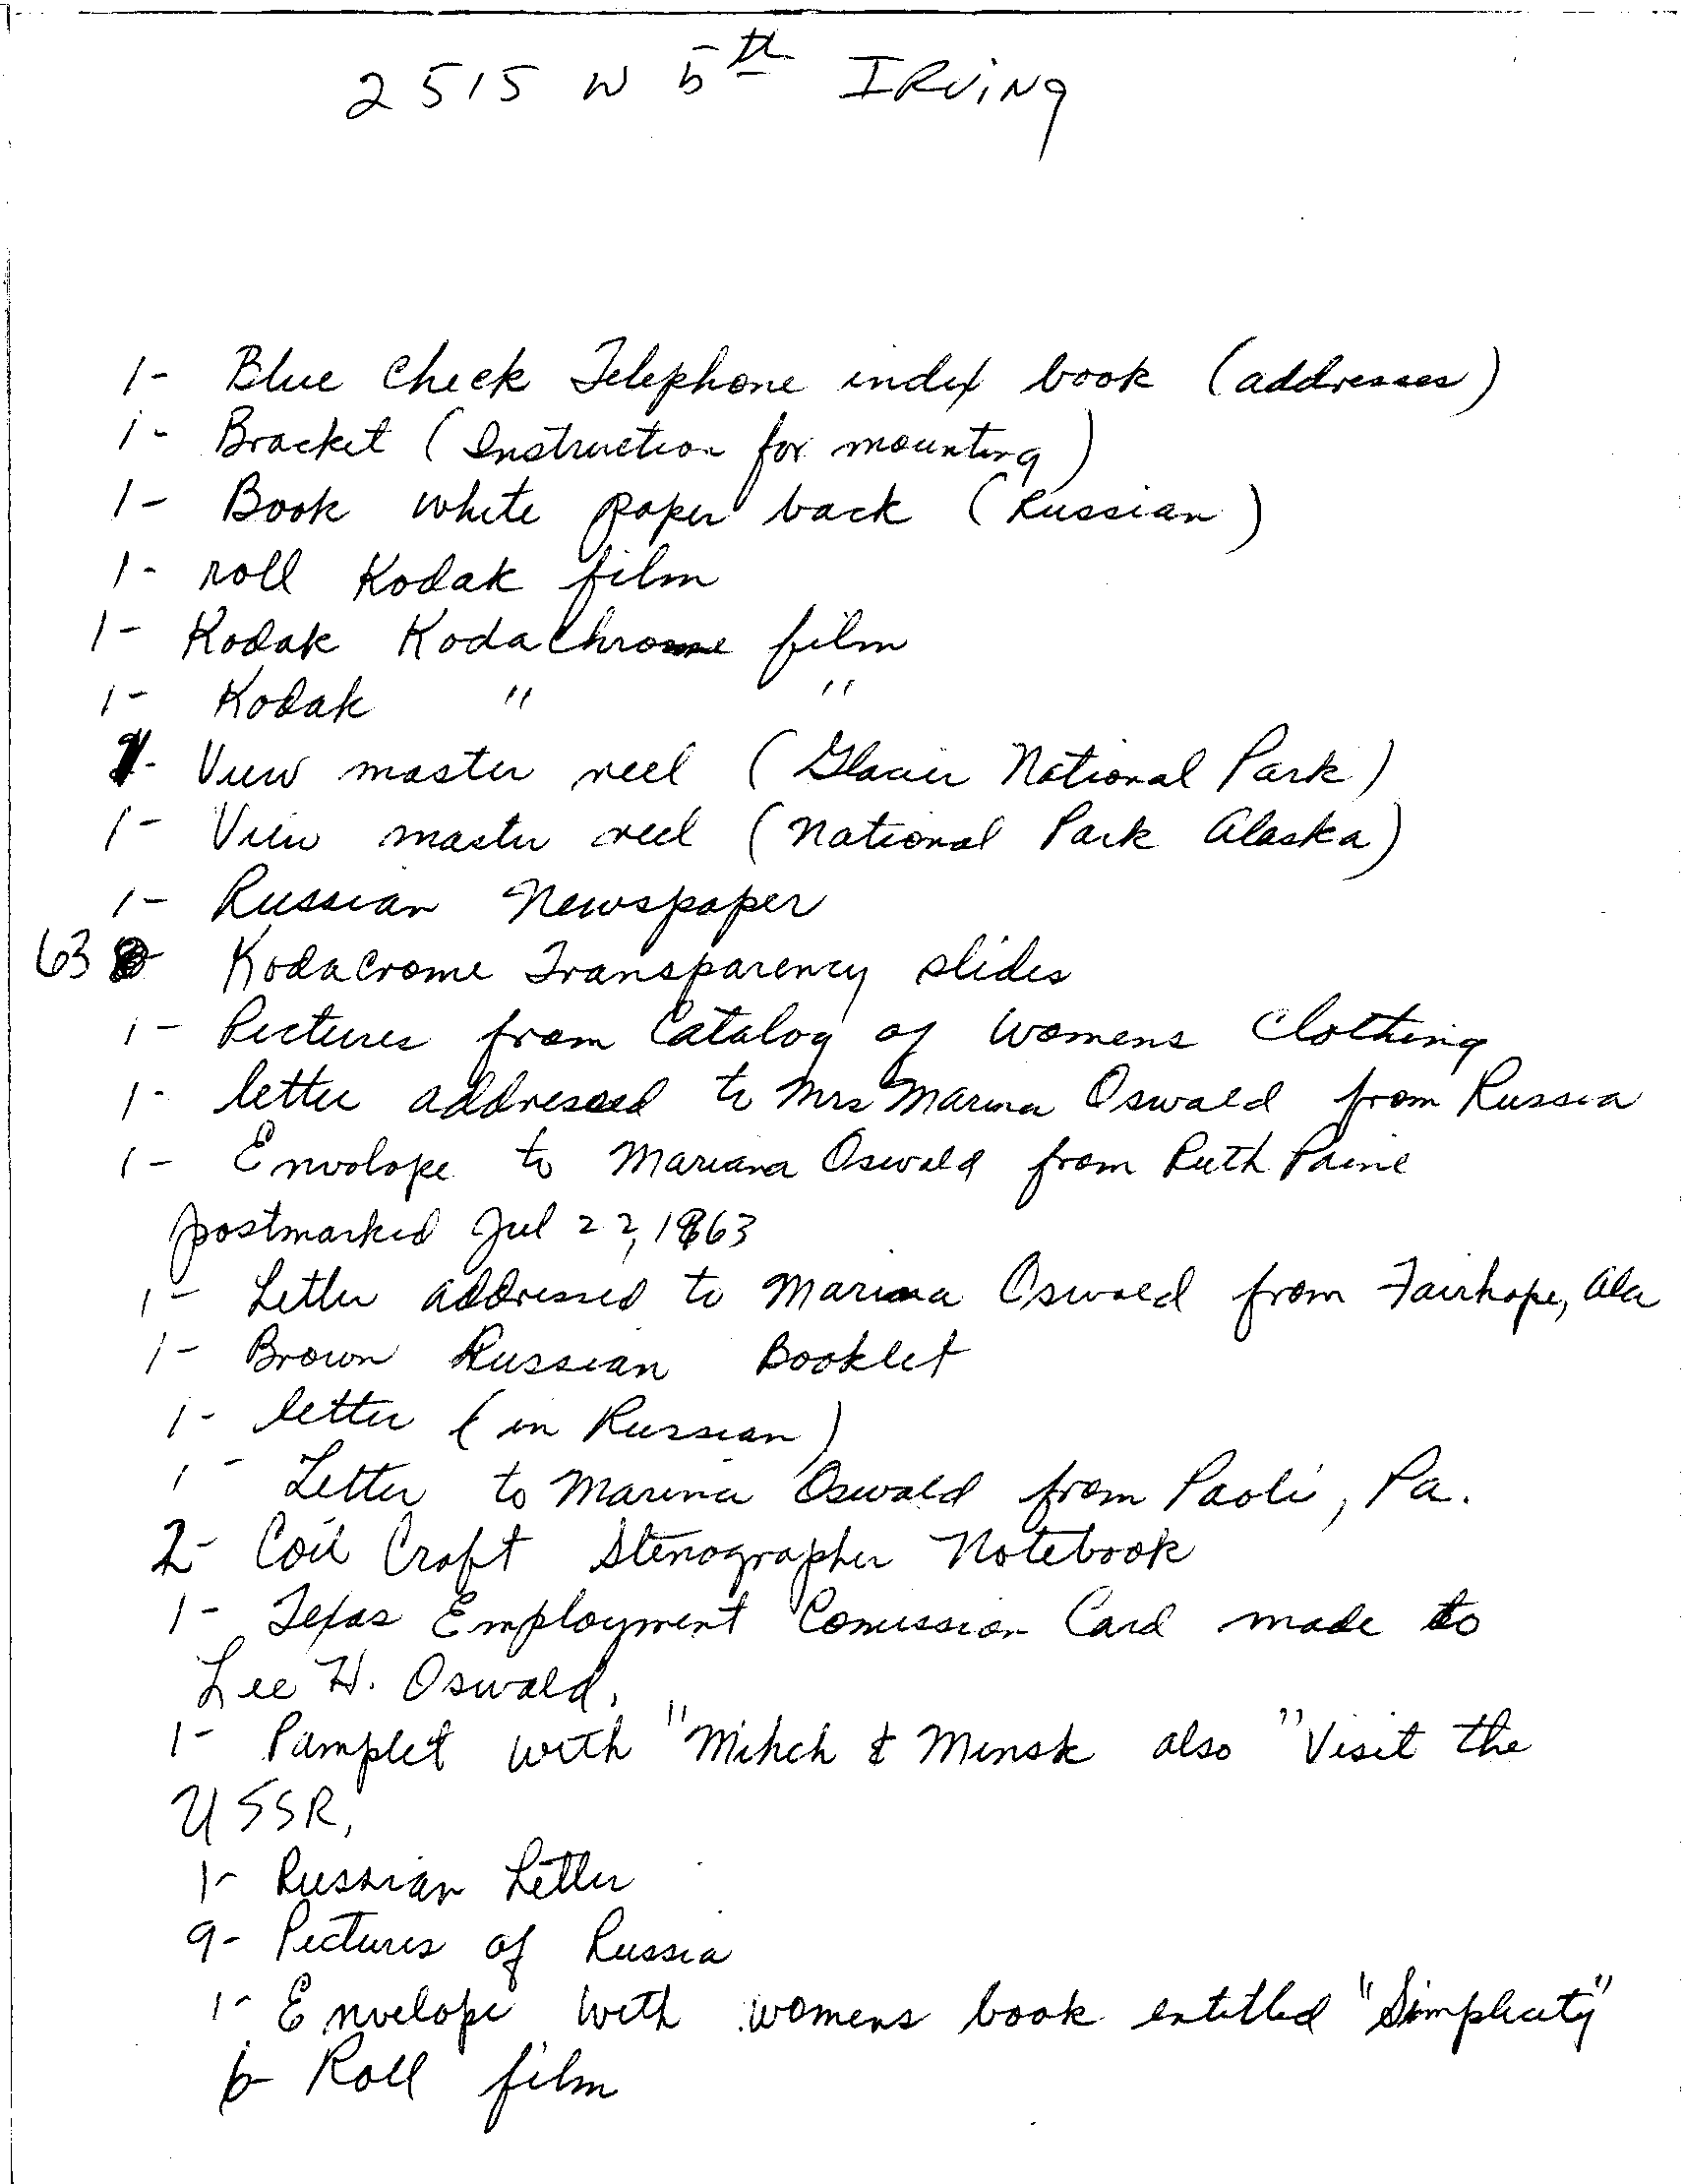 2515 W 5th IRVING
1- Blue Check Telephone index book (addresses)
1- Bracket (Instruction for mounting)
1- Book white paper back (Russian)
1- roll Kodak film
1- Kodak KodaChrome film
1- Kodak " "
1- View master reel (Glacier National Park)
1- View master reel (National Park Alaska)
1- Russian Newspaper
63 - Kodacrome Transparency slides
1- Pictures from Catalog of womens Clothing
1- letter addressed to Mrs Marina Oswald from Russia
1- Envolope to Mariana Oswald from Ruth Paine
postmarked Jul 22, 1963
1- Letter addressed to Marina Oswald from Fairhope, Ala
1- Brown Russian Booklet
1- letter (in Russian)
1- Letter to Marina Oswald from Paoli, Pa.
2- Coil Craft Stenographer Notebook
1- Texas Employment Comission Card made to
Lee H. Oswald.
1- Pamplet with "Mihch & Minsk also "Visit the
USSR,
1- Russian Letter
9- Pictures of Russia
1- Envelope with womens book entitled "Simplicity"
6- Roll film